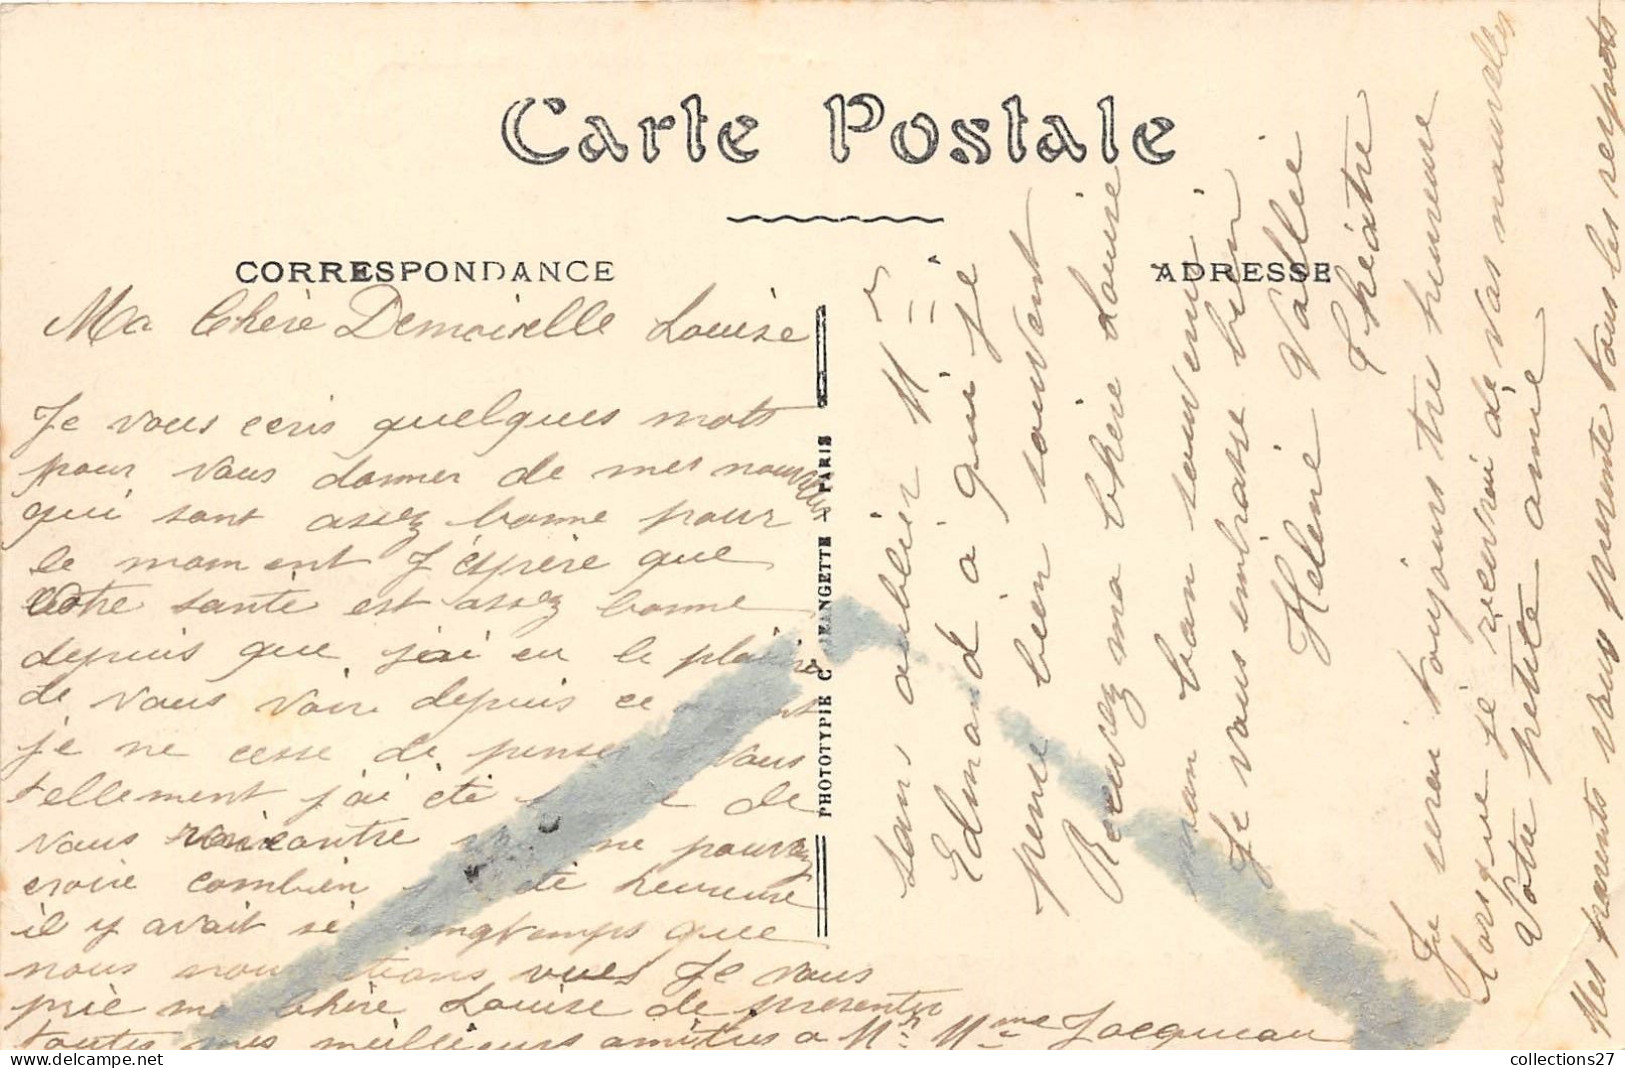 Carte Postale
CORRESPONDANCE
ADRESSE
Ma Chère Demoiselle Louise
Je vous ecris quelques mots
pour vous donner de mes nouvelles
qui sont assez bonne pour
le moment J'éspère que
votre santé est assez bonne
depuis que j'ai eu le plaisire
de vous voire depuis ce
je ne cesse de penser vous
tellement j'ai été de
vous rencontre ne pouvez
croire combien été heureuse
il y avait si longtemps que
nous nous etions vues Je vous
prie ma Chère Louise de presenter
toutes mes meilleurs amitiés a Mr. Mme Jacqueau
sans oublier Mr
Edmond à qui je
pense bien souvent
Recevez ma Chère Louise
mon bon souvenir
Je vous embrasse bien
Helene Vallie
Théâtre
Je serai toujours tres heureuse
lorsque je recevrai de vos nouvelles
Votre petite amie
Mes parents vous presente tous les respects
PHOTOTYPIE C JEANGETTE - PARIS
collections27